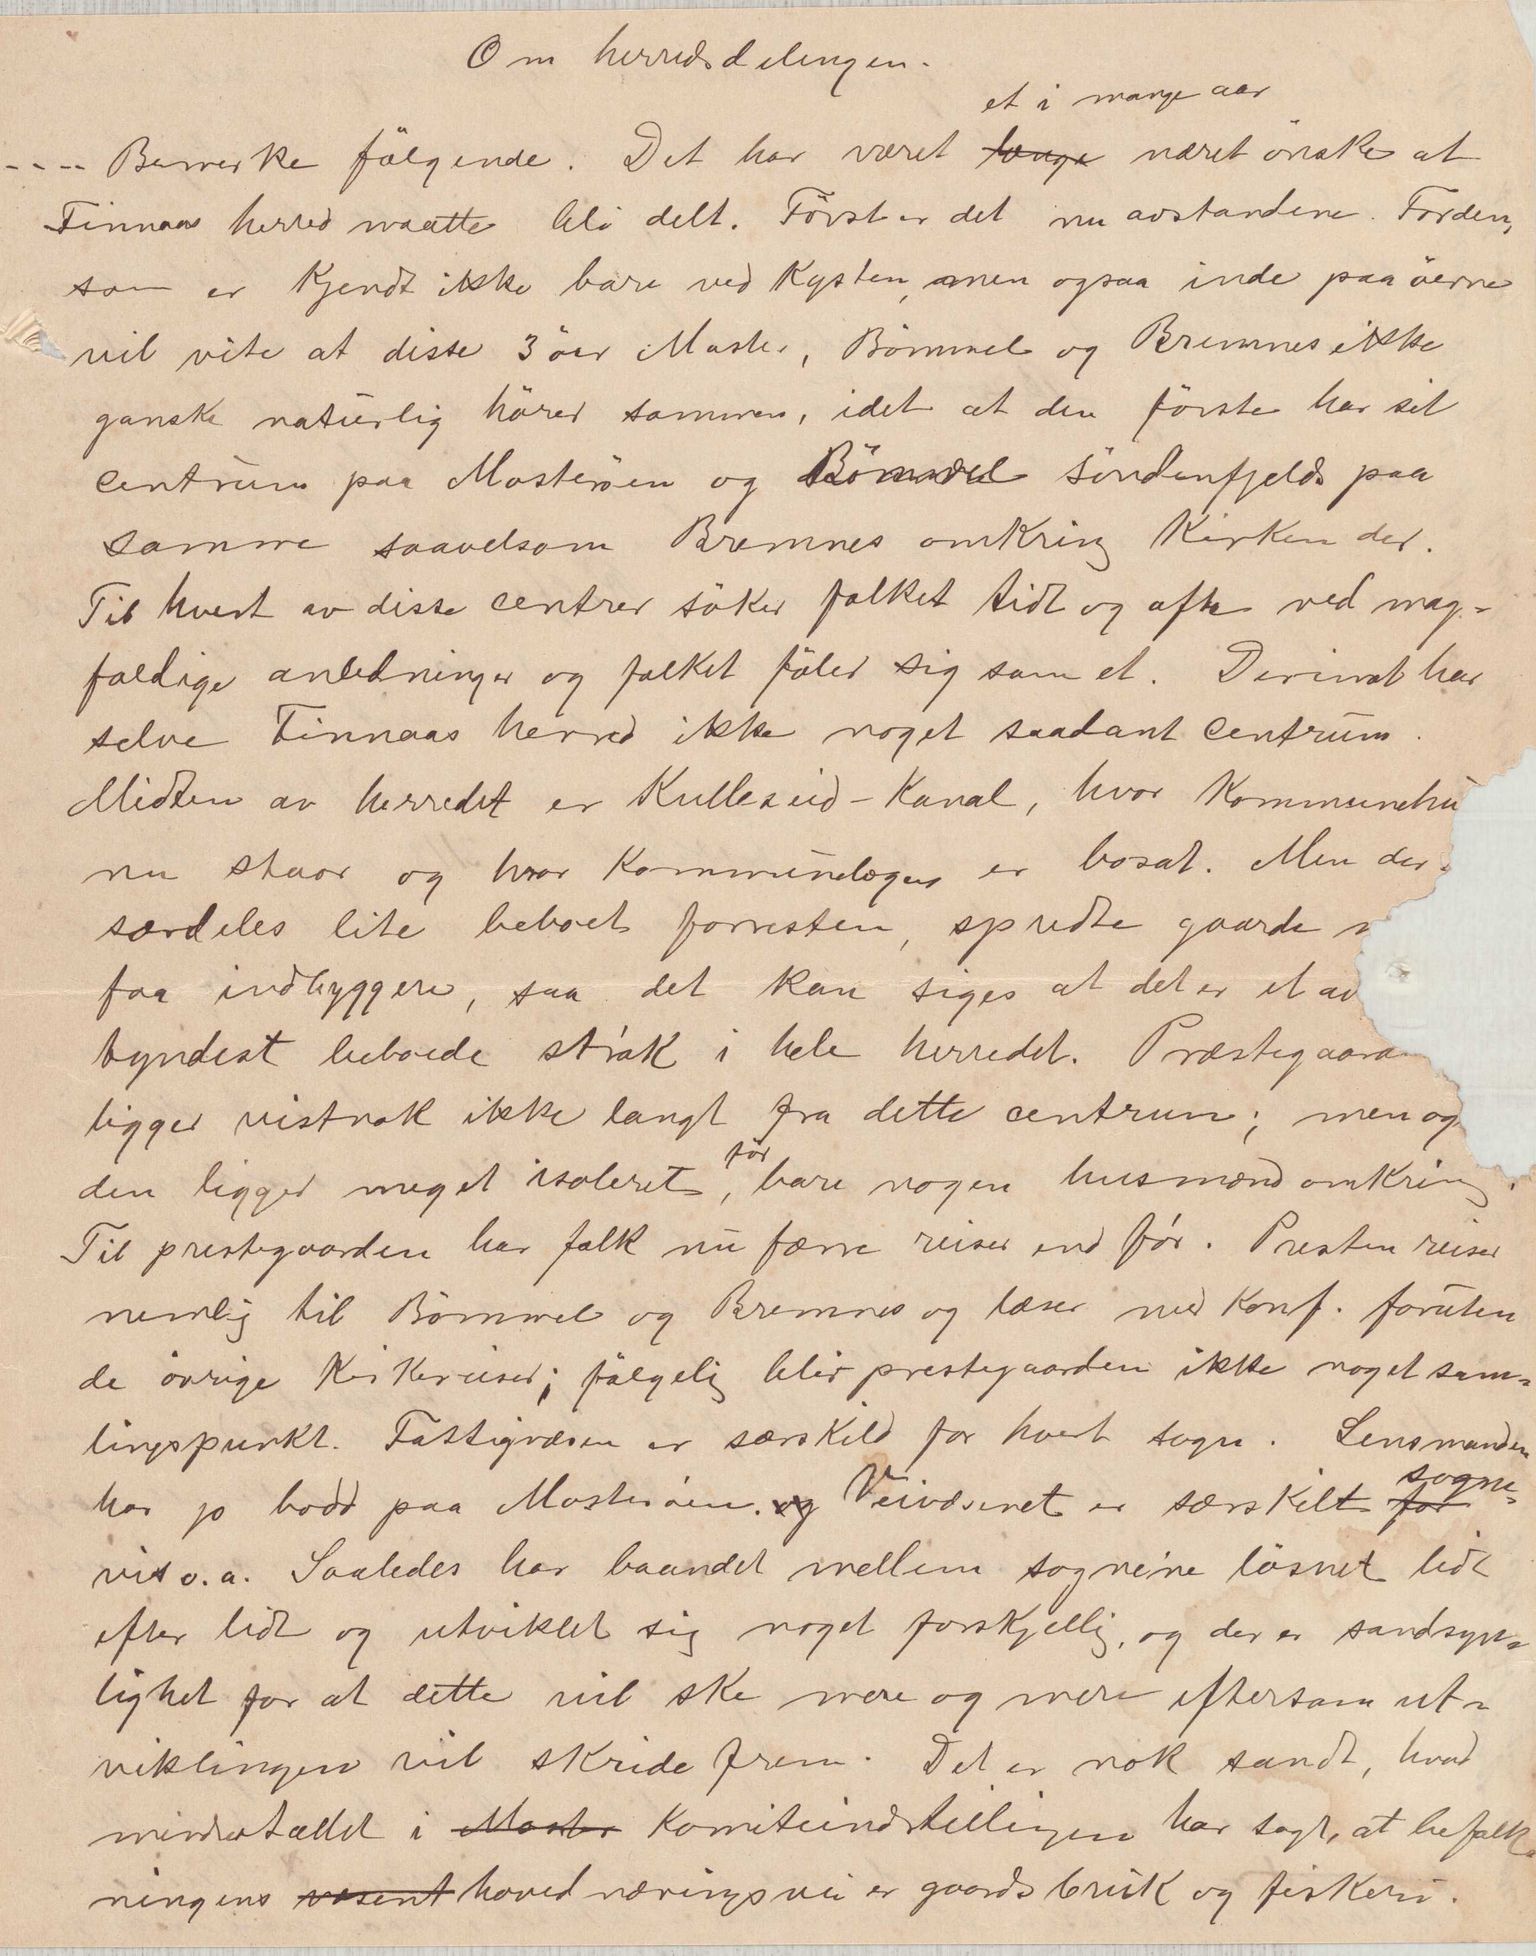 Om herredsdelingen.
et i mange aar
---- Bemerke følgende. Det har været længe næret önske at
Finnaas herred maatte bli delt. Först er det nu avstandene. Forden,
som er kjendt ikke bare ved kysten, men ogsaa inde paa öerne
vil vite at disse 3 öer Moster, Bömmel og Bremnes ikke
ganske naturlig hörer sammen, idet at den förste har sit
centrum paa Mosteröen og Bömmel söndenfjelds paa
samme saavelsom Bremnes omkring Kirken der.
Til hvert av disse centrer söker folket tidt og ofte ved mag-
foldige anledninger og folket föler sig som et. Derimot har
selve Finnaas herred ikke noget saadant centrum.
Midten av herredet er Kulleseid-Kanal, hvor Kommunehu
nu staar og hvor Kommunelægen er bosat. Men der
særdeles lite beboet forresten, spredte gaarde
faa indbyggere, saa det kan siges at det er et av
tyndest beboede strök i hele herredet. Præstegaard
ligger vistnok ikke langt fra dette centrum; men og
den ligger meget isoleret, för bare nogen husmænd omkring.
Til prestegaarden har folk nu færre reiser end för. Presten reiser
nemlig til Bömmel og Bremnes og læser med Konf. foruten
de övrige Kirkereiser; fölgelig blir prestegaarden ikke noget sam-
lingspunkt. Fattigvæsen er særskild for hvert sogn. Lensmanden
har jo bodd paa Mosteröen. og Veivæsenet er særskilt for sogne-
vis o.a. Saaledes har baandet mellem sognene lösnet lidt
efter lidt og utviklet sig noget forskjellig, og der er sandsyn-
lighet for at dette vil ske mere og mere eftersom ut-
viklingen vil skride frem. Det er nok sandt, hvad
mindretallet i Moster Komiteindstillingen har sagt, at befolk-
ningens vesent hovednæringsvei er gaardsbruk og fiskeri.